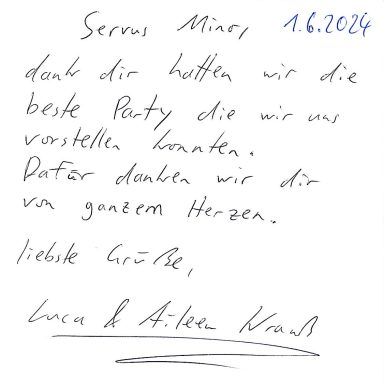 Servus Mino, 1.6.2024
dank dir hatten wir die
beste Party die wir uns
vorstellen konnten.
Dafür danken wir dir
von ganzem Herzen.
liebste Grüße,
Luca & Aileen Krauß